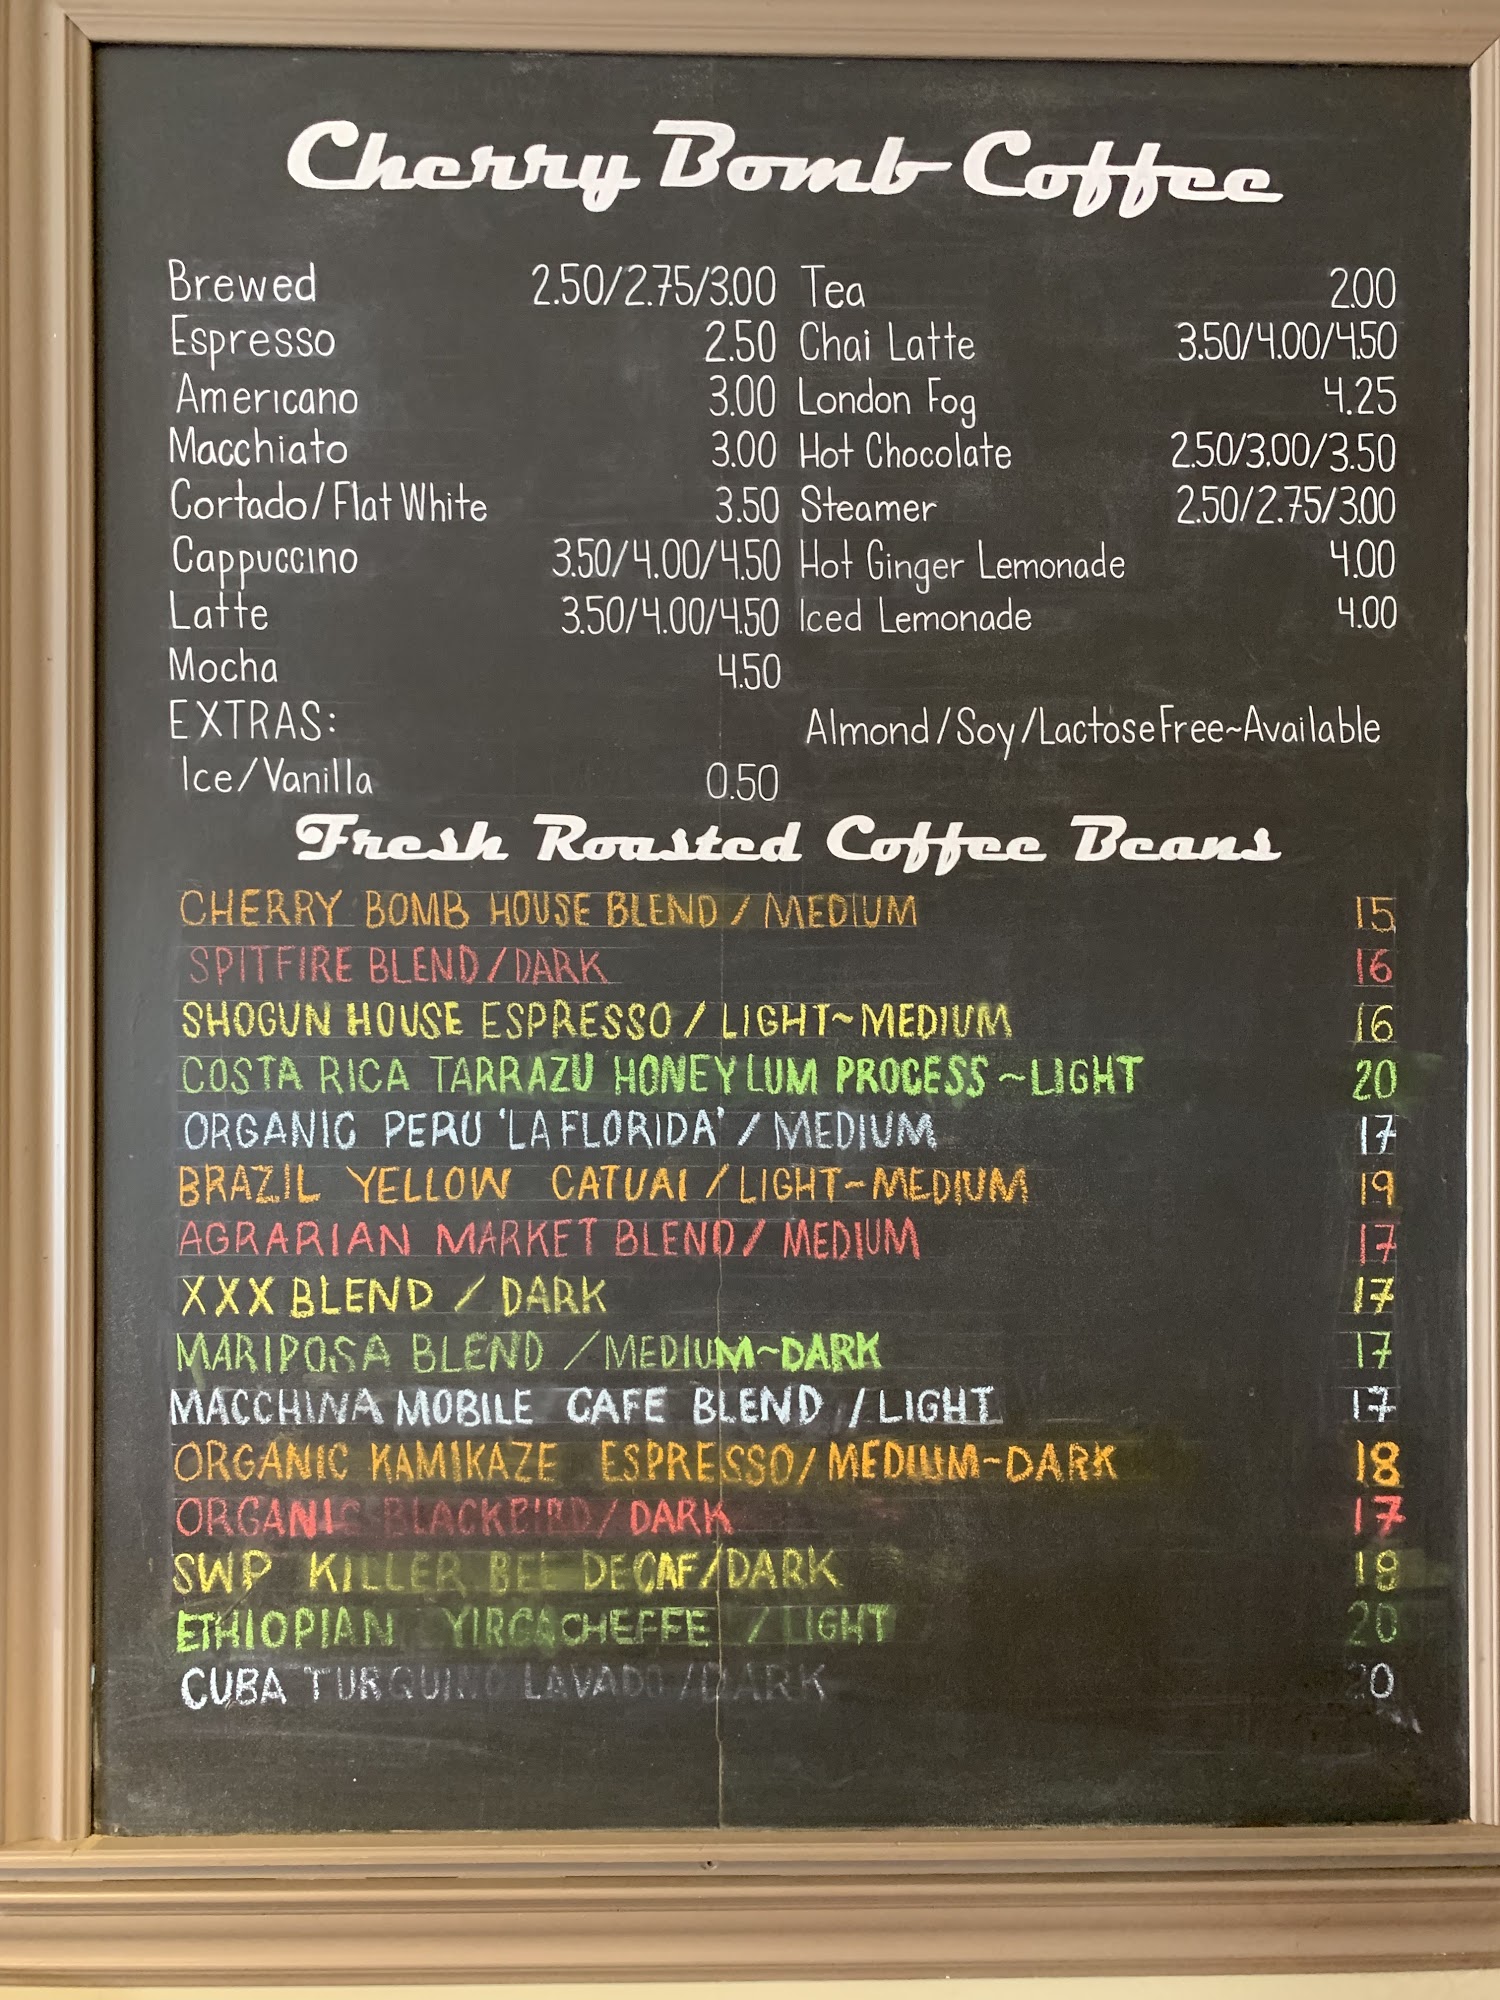 Cherry Bomb Coffee
Brewed 2.50/2.75/3.00
Espresso 2.50
Americano 3.00
Macchiato 3.00
Cortado/Flat White 3.50
Cappuccino 3.50/4.00/4.50
Latte 3.50/4.00/4.50
Mocha 4.50
EXTRAS:
Ice/Vanilla 0.50
Tea 2.00
Chai Latte 3.50/4.00/4.50
London Fog 4.25
Hot Chocolate 2.50/3.00/3.50
Steamer 2.50/2.75/3.00
Hot Ginger Lemonade 4.00
Iced Lemonade 4.00
Almond/Soy/Lactose Free~Available
Fresh Roasted Coffee Beans
CHERRY BOMB HOUSE BLEND / MEDIUM 15
SPITFIRE BLEND/DARK 16
SHOGUN HOUSE ESPRESSO / LIGHT~MEDIUM 16
COSTA RICA TARRAZU HONEY LUM PROCESS ~LIGHT 20
ORGANIC PERU 'LA FLORIDA' / MEDIUM 17
BRAZIL YELLOW CATUAI / LIGHT~MEDIUM 19
AGRARIAN MARKET BLEND / MEDIUM 17
XXX BLEND / DARK 17
MARIPOSA BLEND / MEDIUM~DARK 17
MACCHINA MOBILE CAFE BLEND / LIGHT 17
ORGANIC KAMIKAZE ESPRESSO/MEDIUM~DARK 18
ORGANIC BLACKBIRD/DARK 17
SWP KILLER BEE DECAF/DARK 18
ETHIOPIAN YIRGACHEFFE / LIGHT 20
CUBA TURQUINO LAVADO /DARK 20